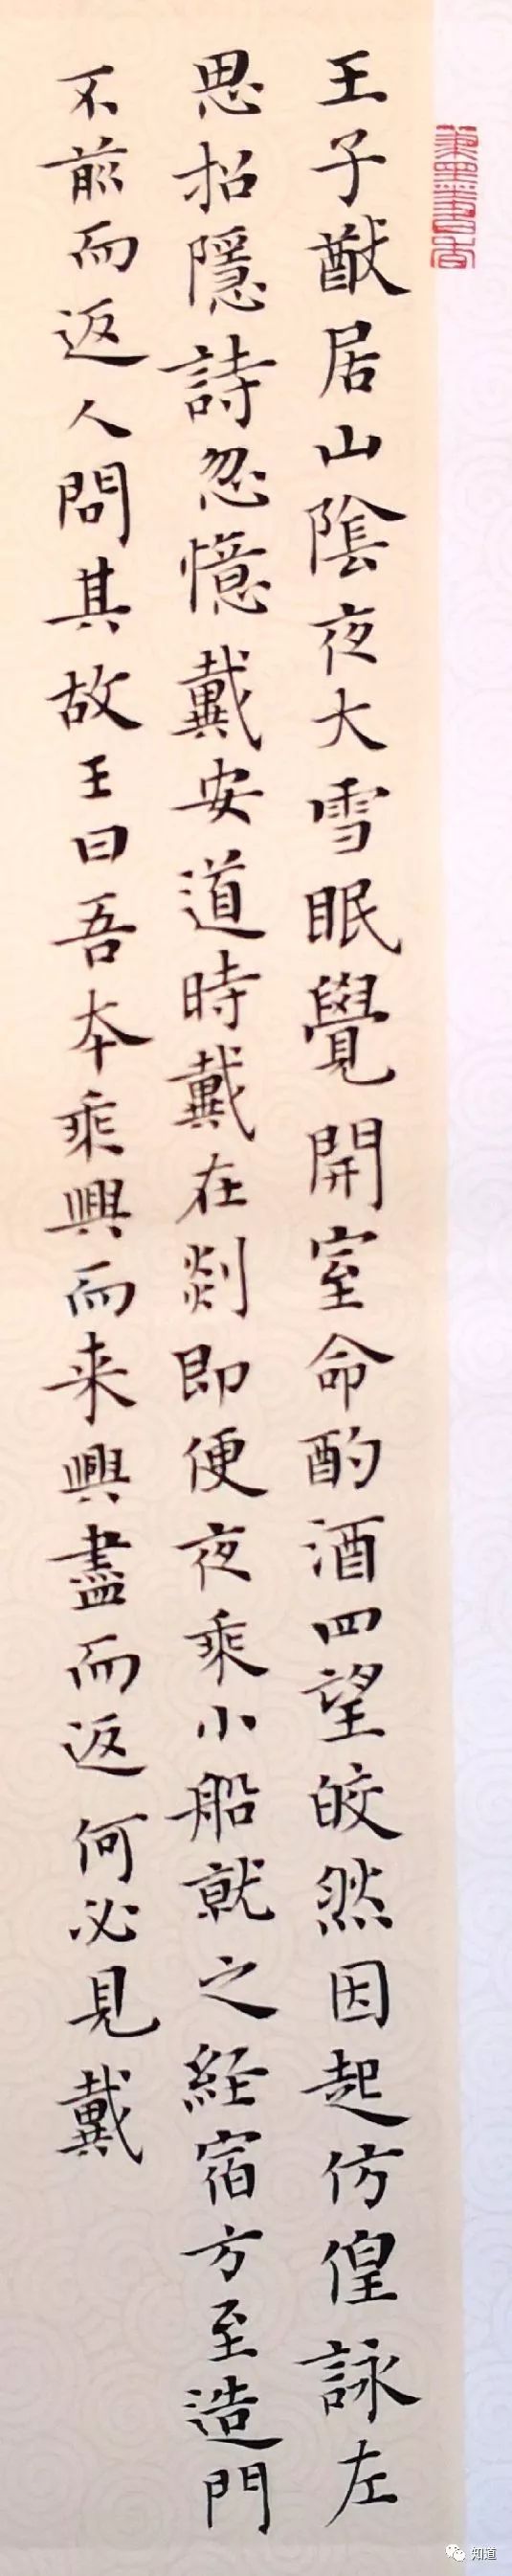 王子猷居山陰夜大雪眠覺開室命酌酒四望皎然因起仿偟詠左
思招隱詩忽憶戴安道時戴在剡即便夜乘小船就之経宿方至造門
不前而返人問其故王曰吾本乘興而来興盡而返何必見戴
知道